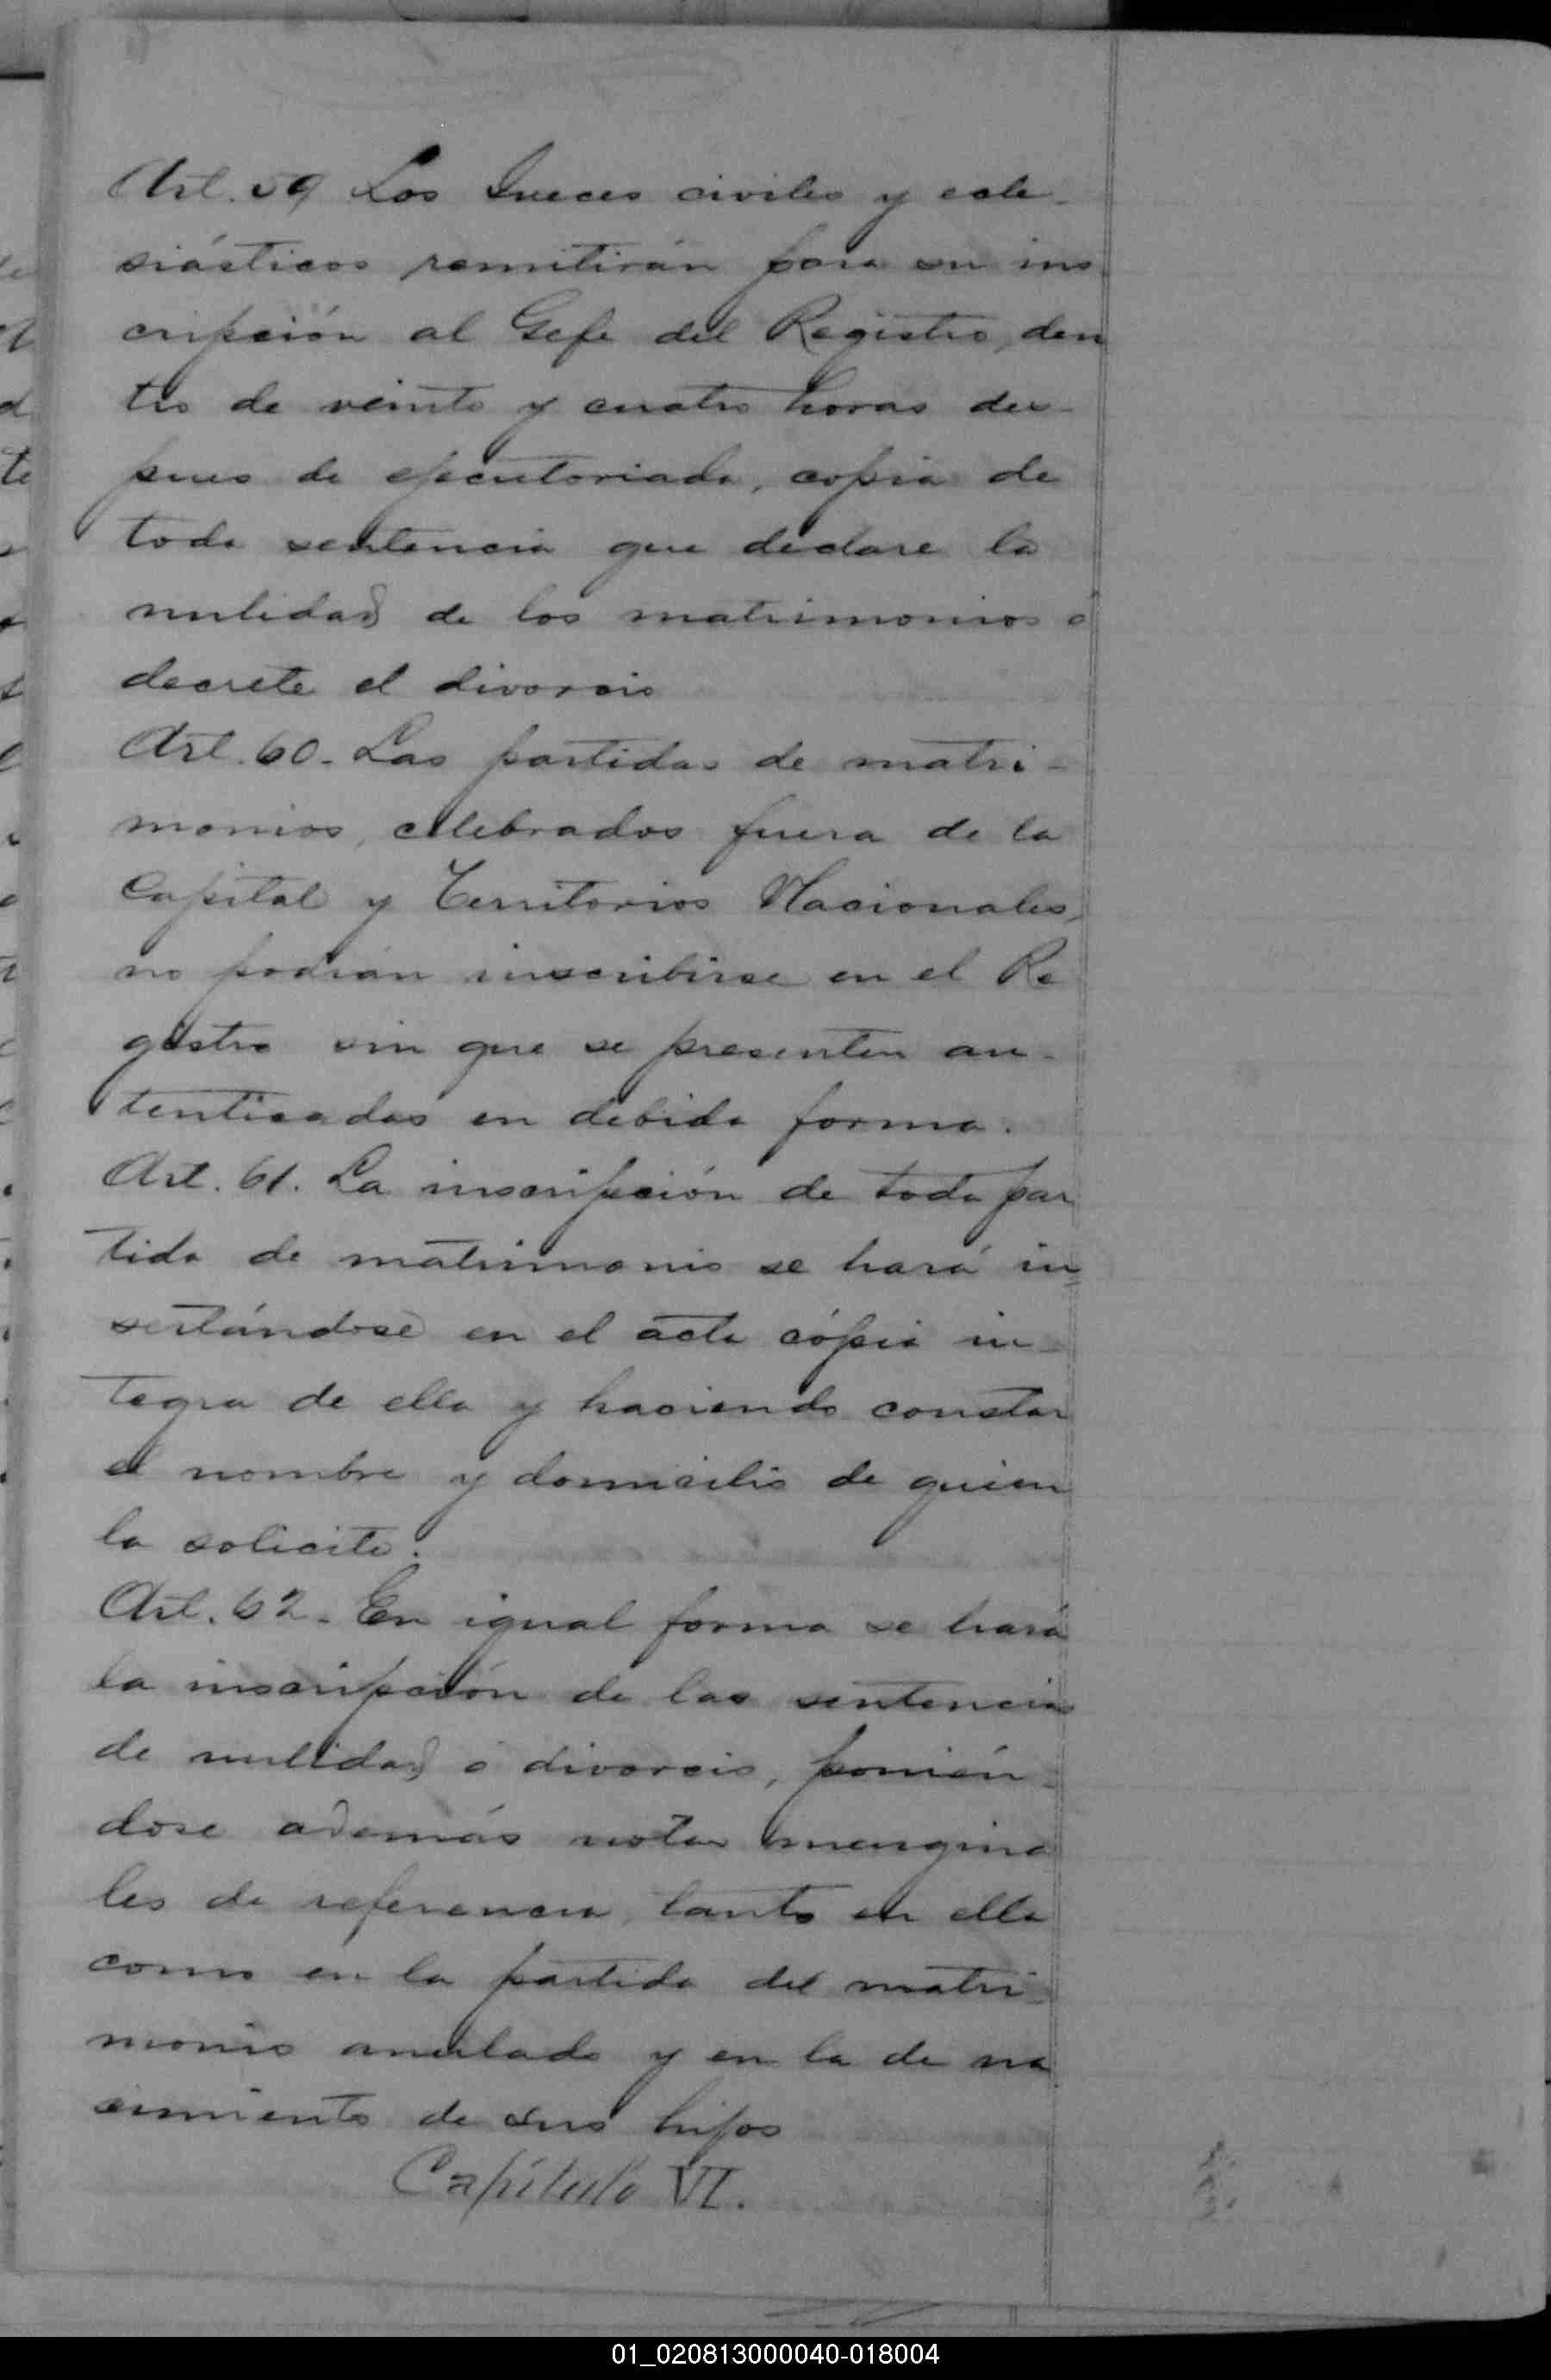 Art. 59 Los Jueces civiles y ecle-
siásticos remitirán para su ins
cripción al Gefe del Registro, den
tro de veinte y cuatro horas des-
pues de ejecutoriada, copia de
toda sentencia que declare la
nulidad de los matrimonios ó
decrete el divorcio
Art. 60. Las partidas de matri-
monios, celebrados fuera de la
Capital y Territorios Nacionales,
no podrán inscribirse en el Re
gistro sin que se presenten au-
tenticadas en debida forma.
Art. 61. La inscripción de toda par
tida de matrimonio se hará in
sertándose en el acta cópia in-
tegra de ella y haciendo constar
el nombre y domicilio de quien
la solicite.
Art. 62. En igual forma se hará
la inscripción de las sentencias
de nulidad ó divorcio, ponién-
dose además notas margina
les de referencia, tanto en ella
como en la partida del matri-
monio anulado y en la de na
cimiento de sus hijos
Capítulo VI.
01_020813000040-018004